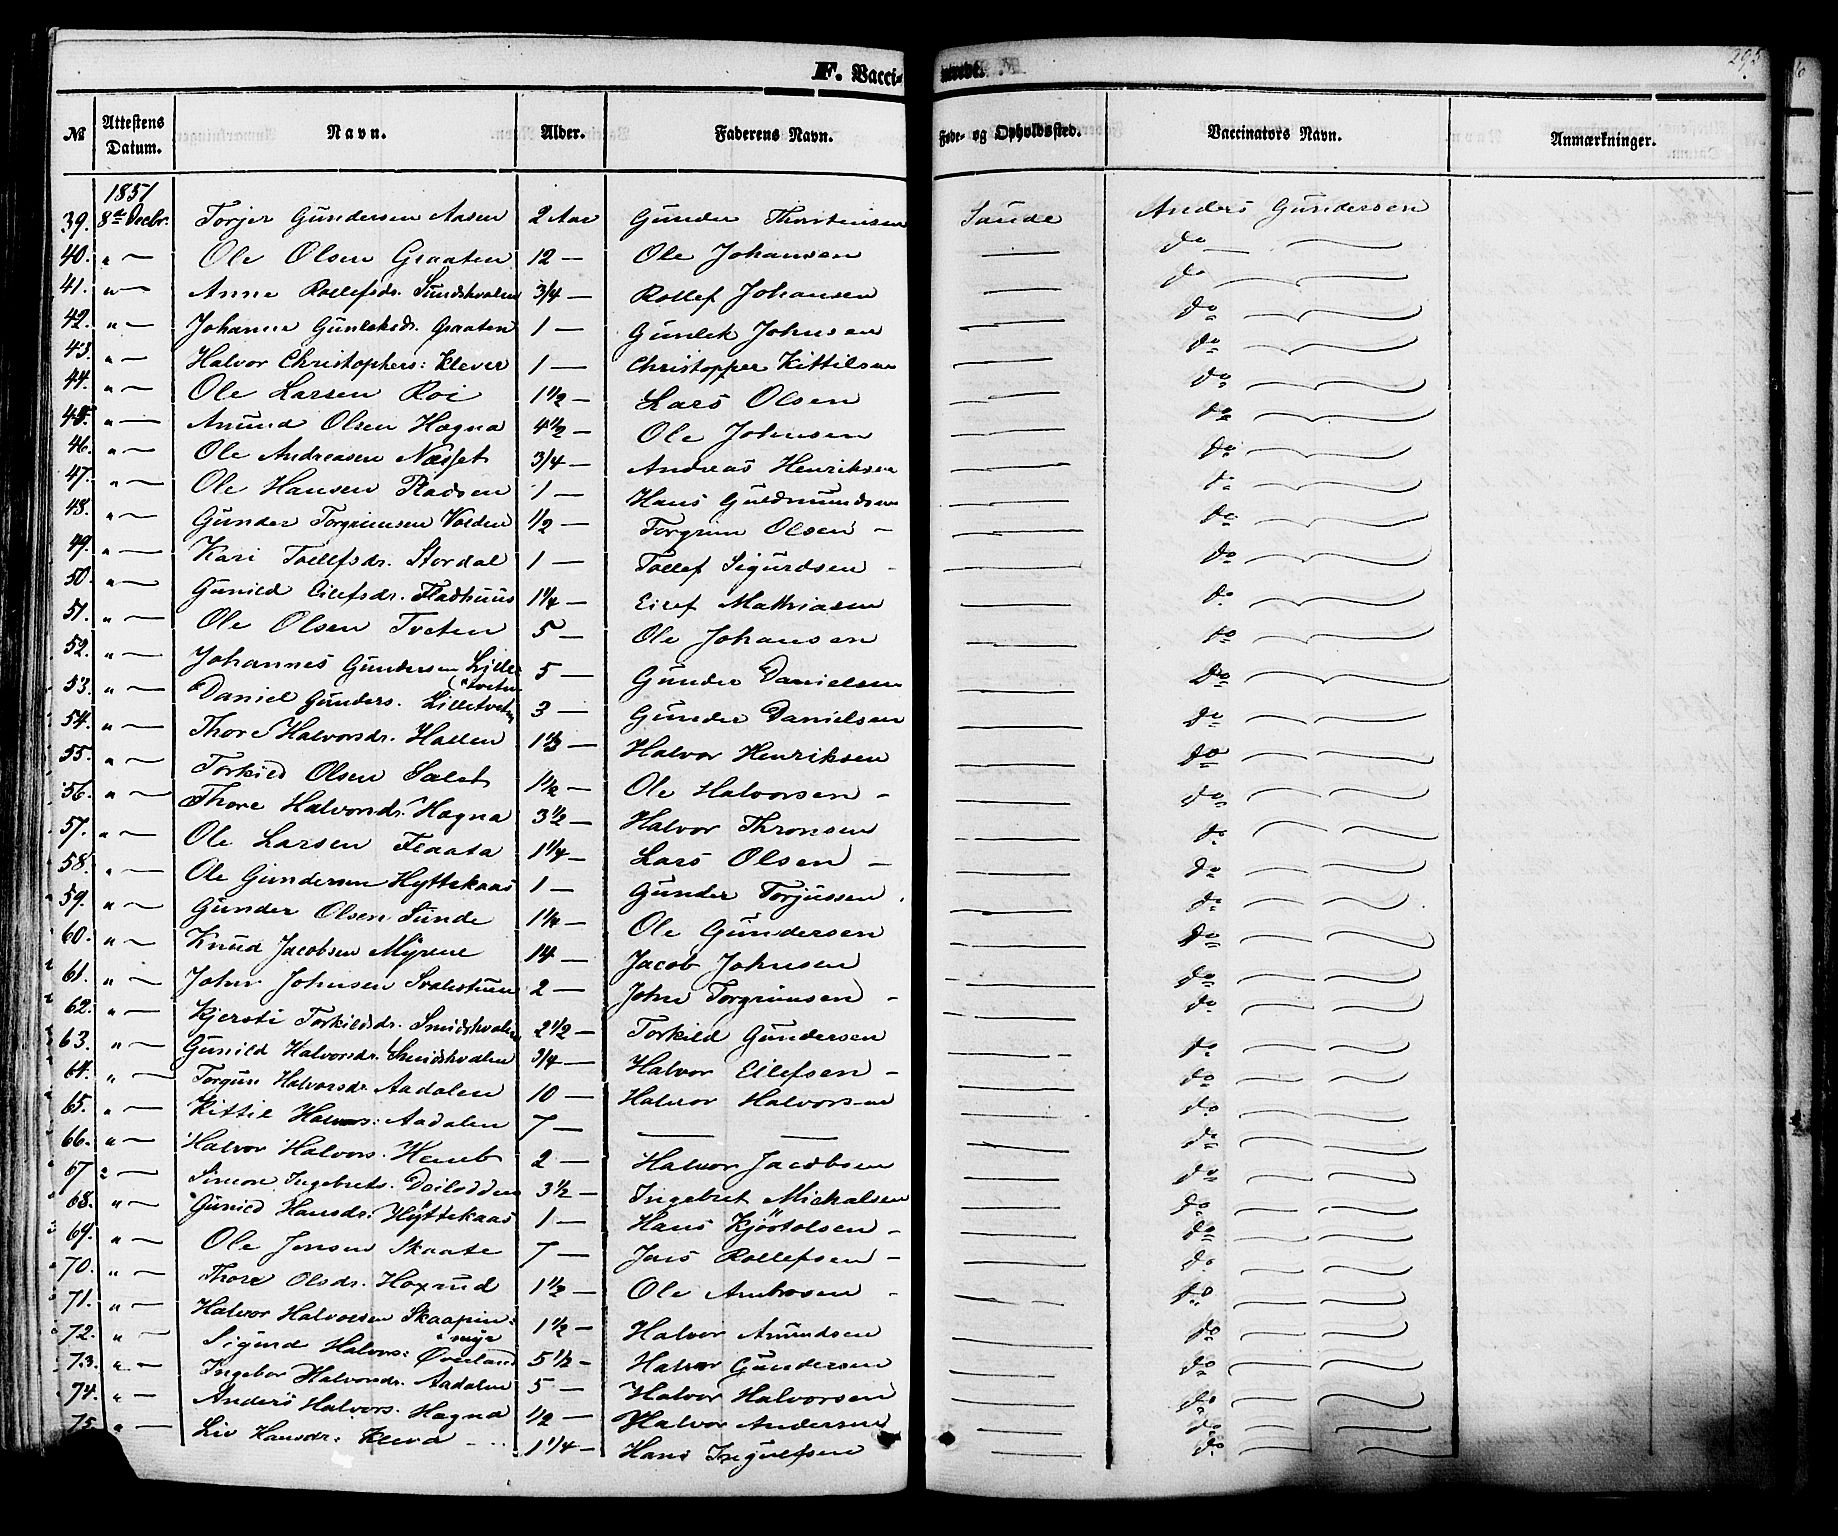 F. Vacci- nerede. 295
No Attestens Datum. Navn. Alder. Faderens Navn. Føde- og Opholdssted. Vaccinators Navn. Anmærkninger.
1851
39. 8de Decbr. Torjer Gundersen Aasen 2 Aar Gunder Thorstensen Saude Anders Gundersen
40. " — Ole Olsen Graaten 12 — Ole Johansen — do —
41. " — Anne Rollefsdr. Sundskvalen 3/4 — Rollef Johansen — do —
42. " — Johanne Gunleksdr. Graaten 1 — Gunlek Johnsen — do —
43. " — Halvor Christophers: Klever 1 — Christopper Kittilsen — do —
44. " — Ole Larsen Roi 1 1/2 — Lars Olsen — do —
45. " — Amund Olsen Hagna 4 1/2 — Ole Johnsen — do —
46. " — Ole Andreasen Næsset 3/4 — Andreas Henriksen — do —
47. " — Ole Hansen Pladsen 1 — Hans Guldmundsen — do —
48. " — Gunder Torgrimsen Volden 1/2 — Torgrim Olsen — do —
49. " — Kari Tollefsdr. Stordal 1 — Tollef Sigurdsen — do —
50. " — Gunild Eilefsdr. Fladhuus 1 1/4 — Eilef Mathiasen — do —
51. " — Ole Olsen Tveten 5 — Ole Johansen — do —
52. " — Johannes Gundersen Lille tveten 5 — Gunder Danielsen — do —
53. " — Daniel Gunders. Lilletveten 3 — Gunder Danielsen — do —
54. " — Thore Halvorsdr. Hallen 1 1/3 — Halvor Henriksen — do —
55. " — Torkild Olsen Salet 1 1/2 — Ole Halvorsen — do —
56. " — Thore Halvorsdr. Hagna 3 1/2 — Halvor Thronsen — do —
57. " — Ole Larsen Flaata 1 1/4 — Lars Olsen — do —
58. " — Ole Gundersen Hyttekaas 1 — Gunder Torjussen — do —
59. " — Gunder Olsen Sunde 1 1/4 — Ole Gundersen — do —
60. " — Knud Jacobsen Myrene 14 — Jacob Johnsen — do —
61. " — John Johnsen 2 — John Torgrimsen — do —
62. " — Kjersti Torkildsdr. 2 1/2 — Torkild Gundersen — do —
63. " — Gunild Halvorsdr. 3/4 — Halvor Eilefsen — do —
64. " — Torgun Halvorsdr. Aadalen 10 — Halvor Halvorsen — do —
65. " — Kittil Halvors: Aadalen 7 — — — do —
66. " — Halvor Halvors. 2 — Halvor Jacobsen — do —
67 " — Simon Ingebrets. Deilodden 3 1/2 — Ingebret Michalsen — do —
68. " — Gunild Hansdr. Hyttekaas 1 — Hans Kjöstolsen — do —
69. " — Ole Jensen Skaate 7 — Jens Rollefsen — do —
70. " — Thore Olsdr. Hoxrud 1 1/2 — Ole Ambosen — do —
71. " — Halvor Halvorsen Skaapin: myr 1 1/2 — Halvor Amundsen — do —
72. " — Sigurd Halvors: Øverland 5 1/2 — Halvor Gundersen — do —
73. " — Ingebor Halvorsdr. Aadalen 5 — Halvor Halvorsen — do —
74. " — Anders Halvors. Hagna 1/2 — Halvor Andersen — do —
75. " — Liv Hansdr: Kleva 1 1/4 — Hans Ingulfsen — do —